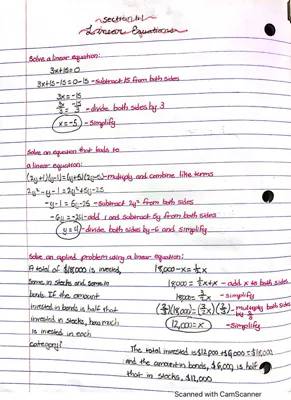 Section 1.1
Linear Equations
Solve a linear equation:
3x+15=0
3x+15-15=0-15 -subtract 15 from both sides
3x=-15
3x/3 = -15/3 -divide both sides by 3
x=-5 -simplify
Solve an equation that leads to
a linear equation:
(2y+1)(y-1)=(y+5)(2y-5) -multiply and combine like terms
2y²-y-1=2y²+5y-25
-y-1=5y-25 -subtract 2y² from both sides
-6y=-24 -add 1 and subtract 5y from both sides
y=4 -divide both sides by -6 and simplify
Solve an applied problem using a linear equation:
A total of $18,000 is invested,
18,000-x=½x
Some in stocks and some in
18,000=½x+x -add x to both sides
bonds. If the amount
18,000=3/2x -simplify
invested in bonds is half that
(2/3)(18,000)=(3/2x)(2/3) -multiply both sides by 2/3
invested in stocks, how much
12,000=x -simplify
is invested in each
category?
The total invested is $12,000+6,000=$18,000
and the amount in bonds, $6,000, is half
that in stocks, $12,000
Scanned with CamScanner